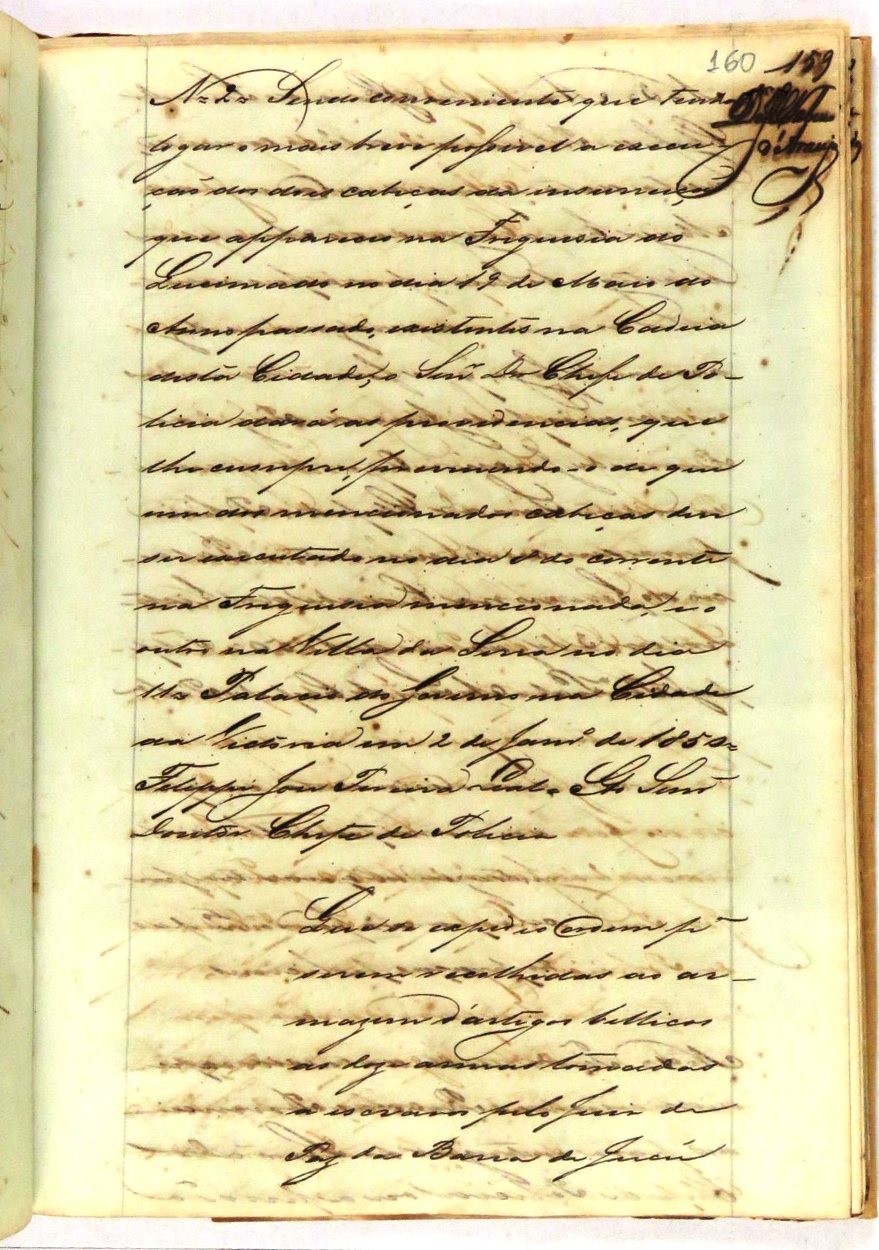 160 159
N.º 2= Sendo conveniente que tenha
logar o mais breve possivel a execu-
ção dos dois cabeças da insurreição
que appareceo na Freguesia do
Queimado no dia 19 de Março do
Anno passado, existentes na Cadeia
desta Cidade, o Senr. Dor Chefe de Po-
licia dará as providencias, que
lhe cumpre, prevenindo-o de que
um dos mencionados cabeças deve
ser executado no dia 8 do corrente
na Freguesia mencionada, e o
outro na Villa da Serra no dia
11= Palacio do Governo na Cidade
da Victoria em 2 de Janro de 1850=
Filippe José Pereira Leal= Sr. Senr
Doutor Chefe de Policia
Que se expedio Ordem pa
serem recolhidas ao ar-
mazem d'artigos bellicos
as doze armas tomadas
a escravos pelo Juiz de
Paz da Barra de Jucú